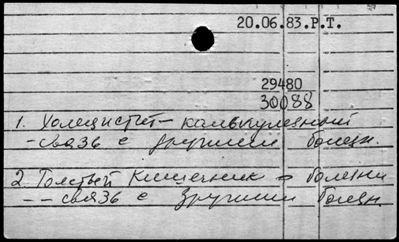 20.06.83.Р.Т.
29480
30088
1. Холецистит - калькулезный
- связь с другими болезн.
2. Толстый Кишечник - болезни
-- связь с другими болезн.